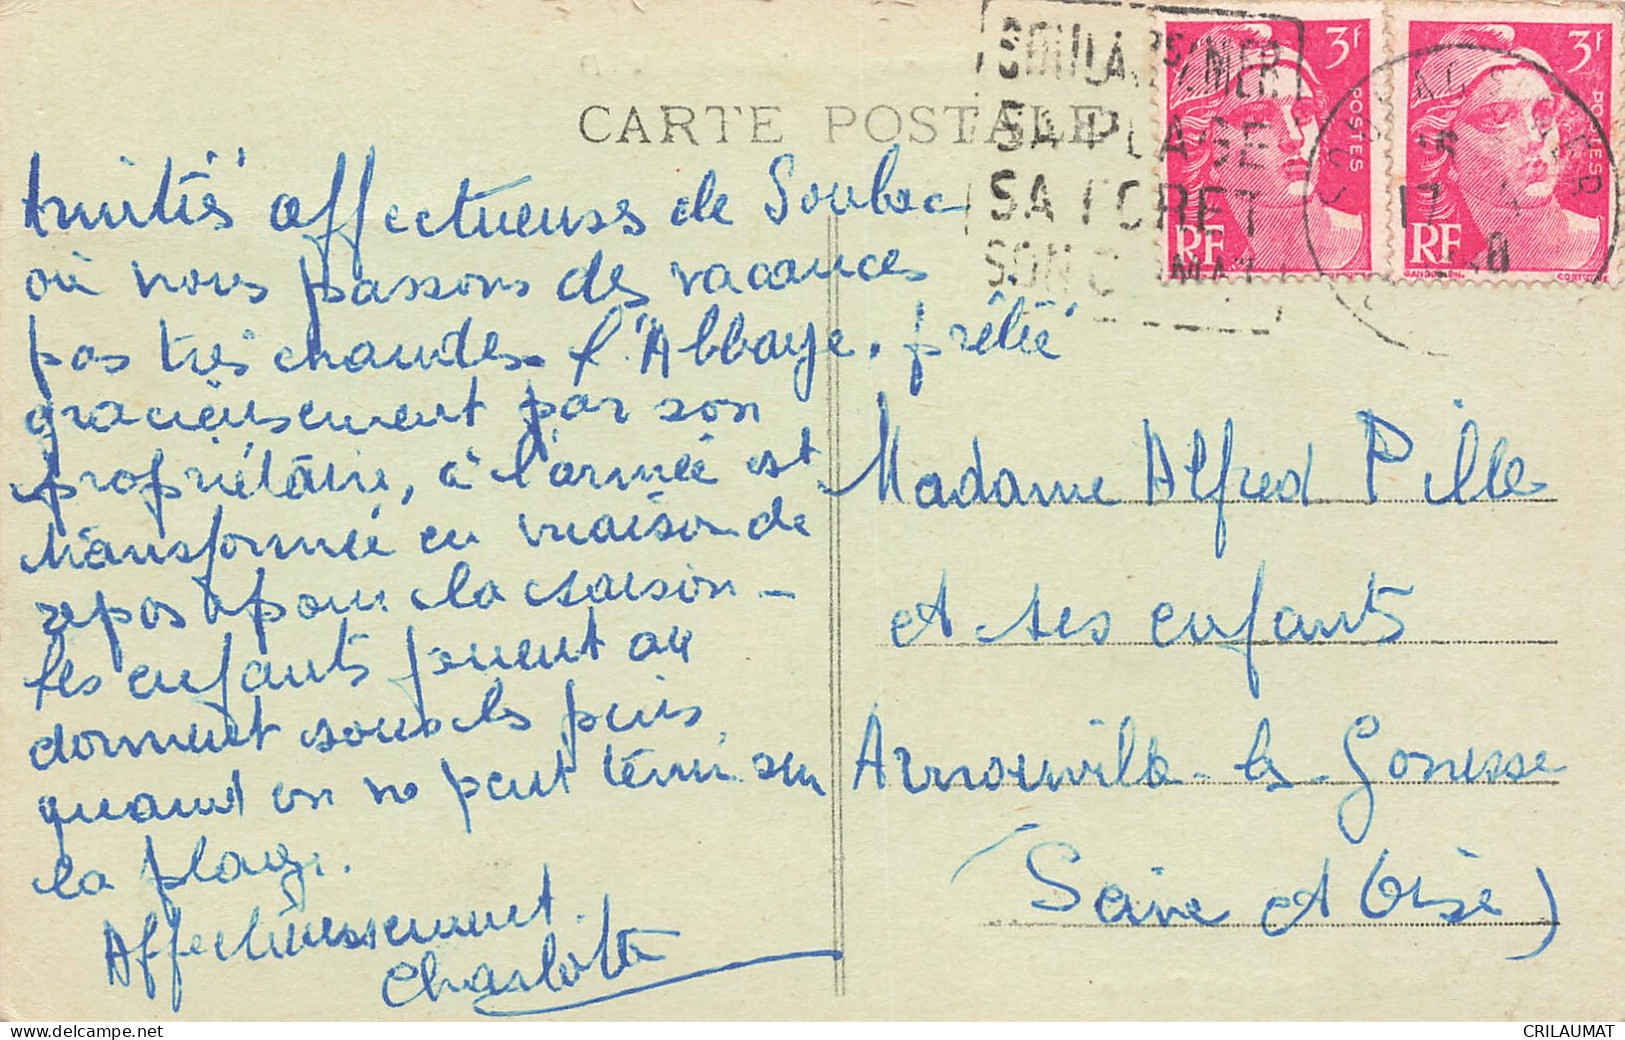 CARTE POSTALE
SOULAC S/MER
SA PLAGE
SA FORET
SON CLIMAT
3F
POSTES
RF
3F
POSTES
RF
GANDON DEL.
CORTOT SC.
17
Amitiés affectueuses de Soulac
où nous passons des vacances
pas très chaudes. l'Abbaye. prêtée
gracieusement par son
propriétaire, à l'armée est
transformée en maison de
repos pour la saison _
les enfants jouent ou
dorment sous les pins
quand on ne peut tenir sur
la plage.
Affectueusement.
Charlotte
Madame Alfred Pille
et ses enfants
Arnouville-les-Gonesse
(Seine et Oise)
www.delcampe.net
CRILAUMAT